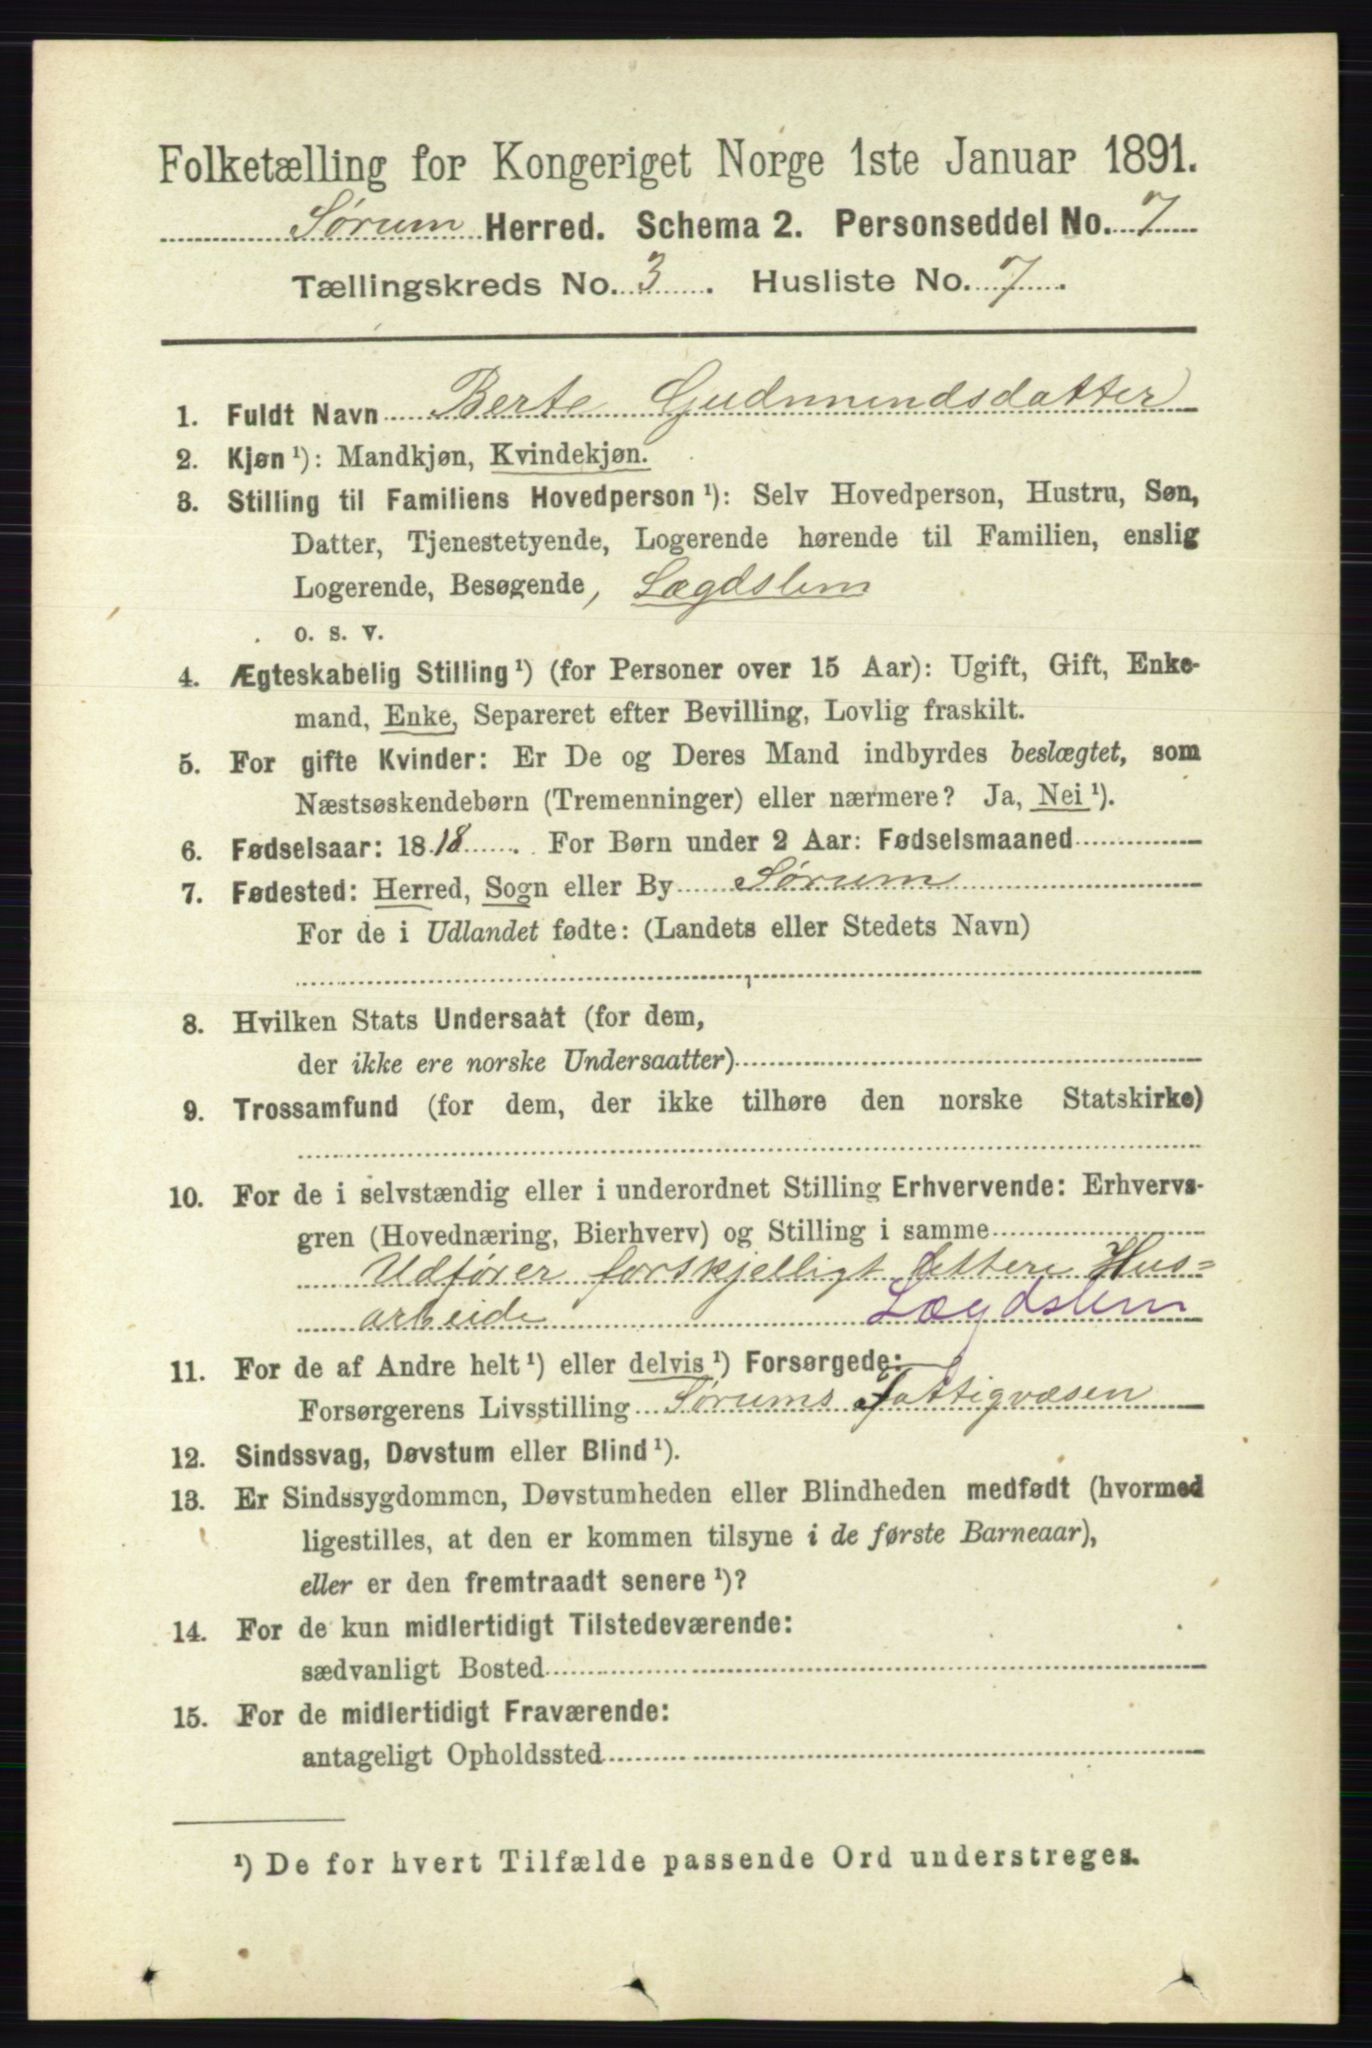 Folketælling for Kongeriget Norge 1ste Januar 1891.
Sørum Herred. Schema 2. Personseddel No. 7
Tællingskreds No. 3. Husliste No. 7.
1. Fuldt Navn Berte Gudmundsdatter
2. Kjøn ¹): Mandkjøn, Kvindekjøn.
3. Stilling til Familiens Hovedperson ¹): Selv Hovedperson, Hustru, Søn,
Datter, Tjenestetyende, Logerende hørende til Familien, enslig
Logerende, Besøgende, Lægdslem
o. s. v.
4. Ægteskabelig Stilling ¹) (for Personer over 15 Aar): Ugift, Gift, Enke-
mand, Enke, Separeret efter Bevilling, Lovlig fraskilt.
5. For gifte Kvinder: Er De og Deres Mand indbyrdes beslægtet, som
Næstsøskendebørn (Tremenninger) eller nærmere? Ja, Nei ¹).
6. Fødselsaar: 1818. For Børn under 2 Aar: Fødselsmaaned
7. Fødested: Herred, Sogn eller By Sørum
For de i Udlandet fødte: (Landets eller Stedets Navn)
8. Hvilken Stats Undersaat (for dem,
der ikke ere norske Undersaatter)
9. Trossamfund (for dem, der ikke tilhøre den norske Statskirke)
10. For de i selvstændig eller i underordnet Stilling Erhvervende: Erhvervs-
gren (Hovednæring, Bierhverv) og Stilling i samme
Udfører forskjelligt lettere Hus=
arbeide Lægdslem
11. For de af Andre helt ¹) eller delvis ¹) Forsørgede:
Forsørgerens Livsstilling Sørums Fattigvæsen
12. Sindssvag, Døvstum eller Blind ¹).
13. Er Sindssygdommen, Døvstumheden eller Blindheden medfødt (hvormed
ligestilles, at den er kommen tilsyne i de første Barneaar),
eller er den fremtraadt senere ¹)?
14. For de kun midlertidigt Tilstedeværende:
sædvanligt Bosted
15. For de midlertidigt Fraværende:
antageligt Opholdssted
¹) De for hvert Tilfælde passende Ord understreges.